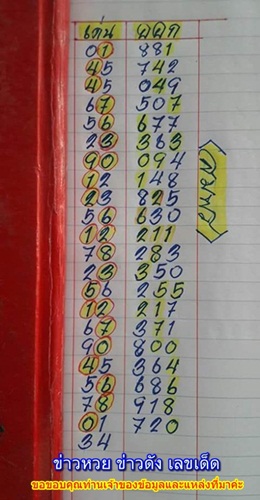 เด่น ผลัก
01 881
45 742
45 049
67 507
56 677
23 383
90 094
12 148
23 825
56 630
12 211
78 283
23 350
56 255
12 217
67 371
90 800
45 364
56 686
78 918
01 720
34
ข่าวหวย ข่าวดัง เลขเด็ด
ขอขอบคุณท่านเจ้าของข้อมูลและแหล่งที่มาค่ะ